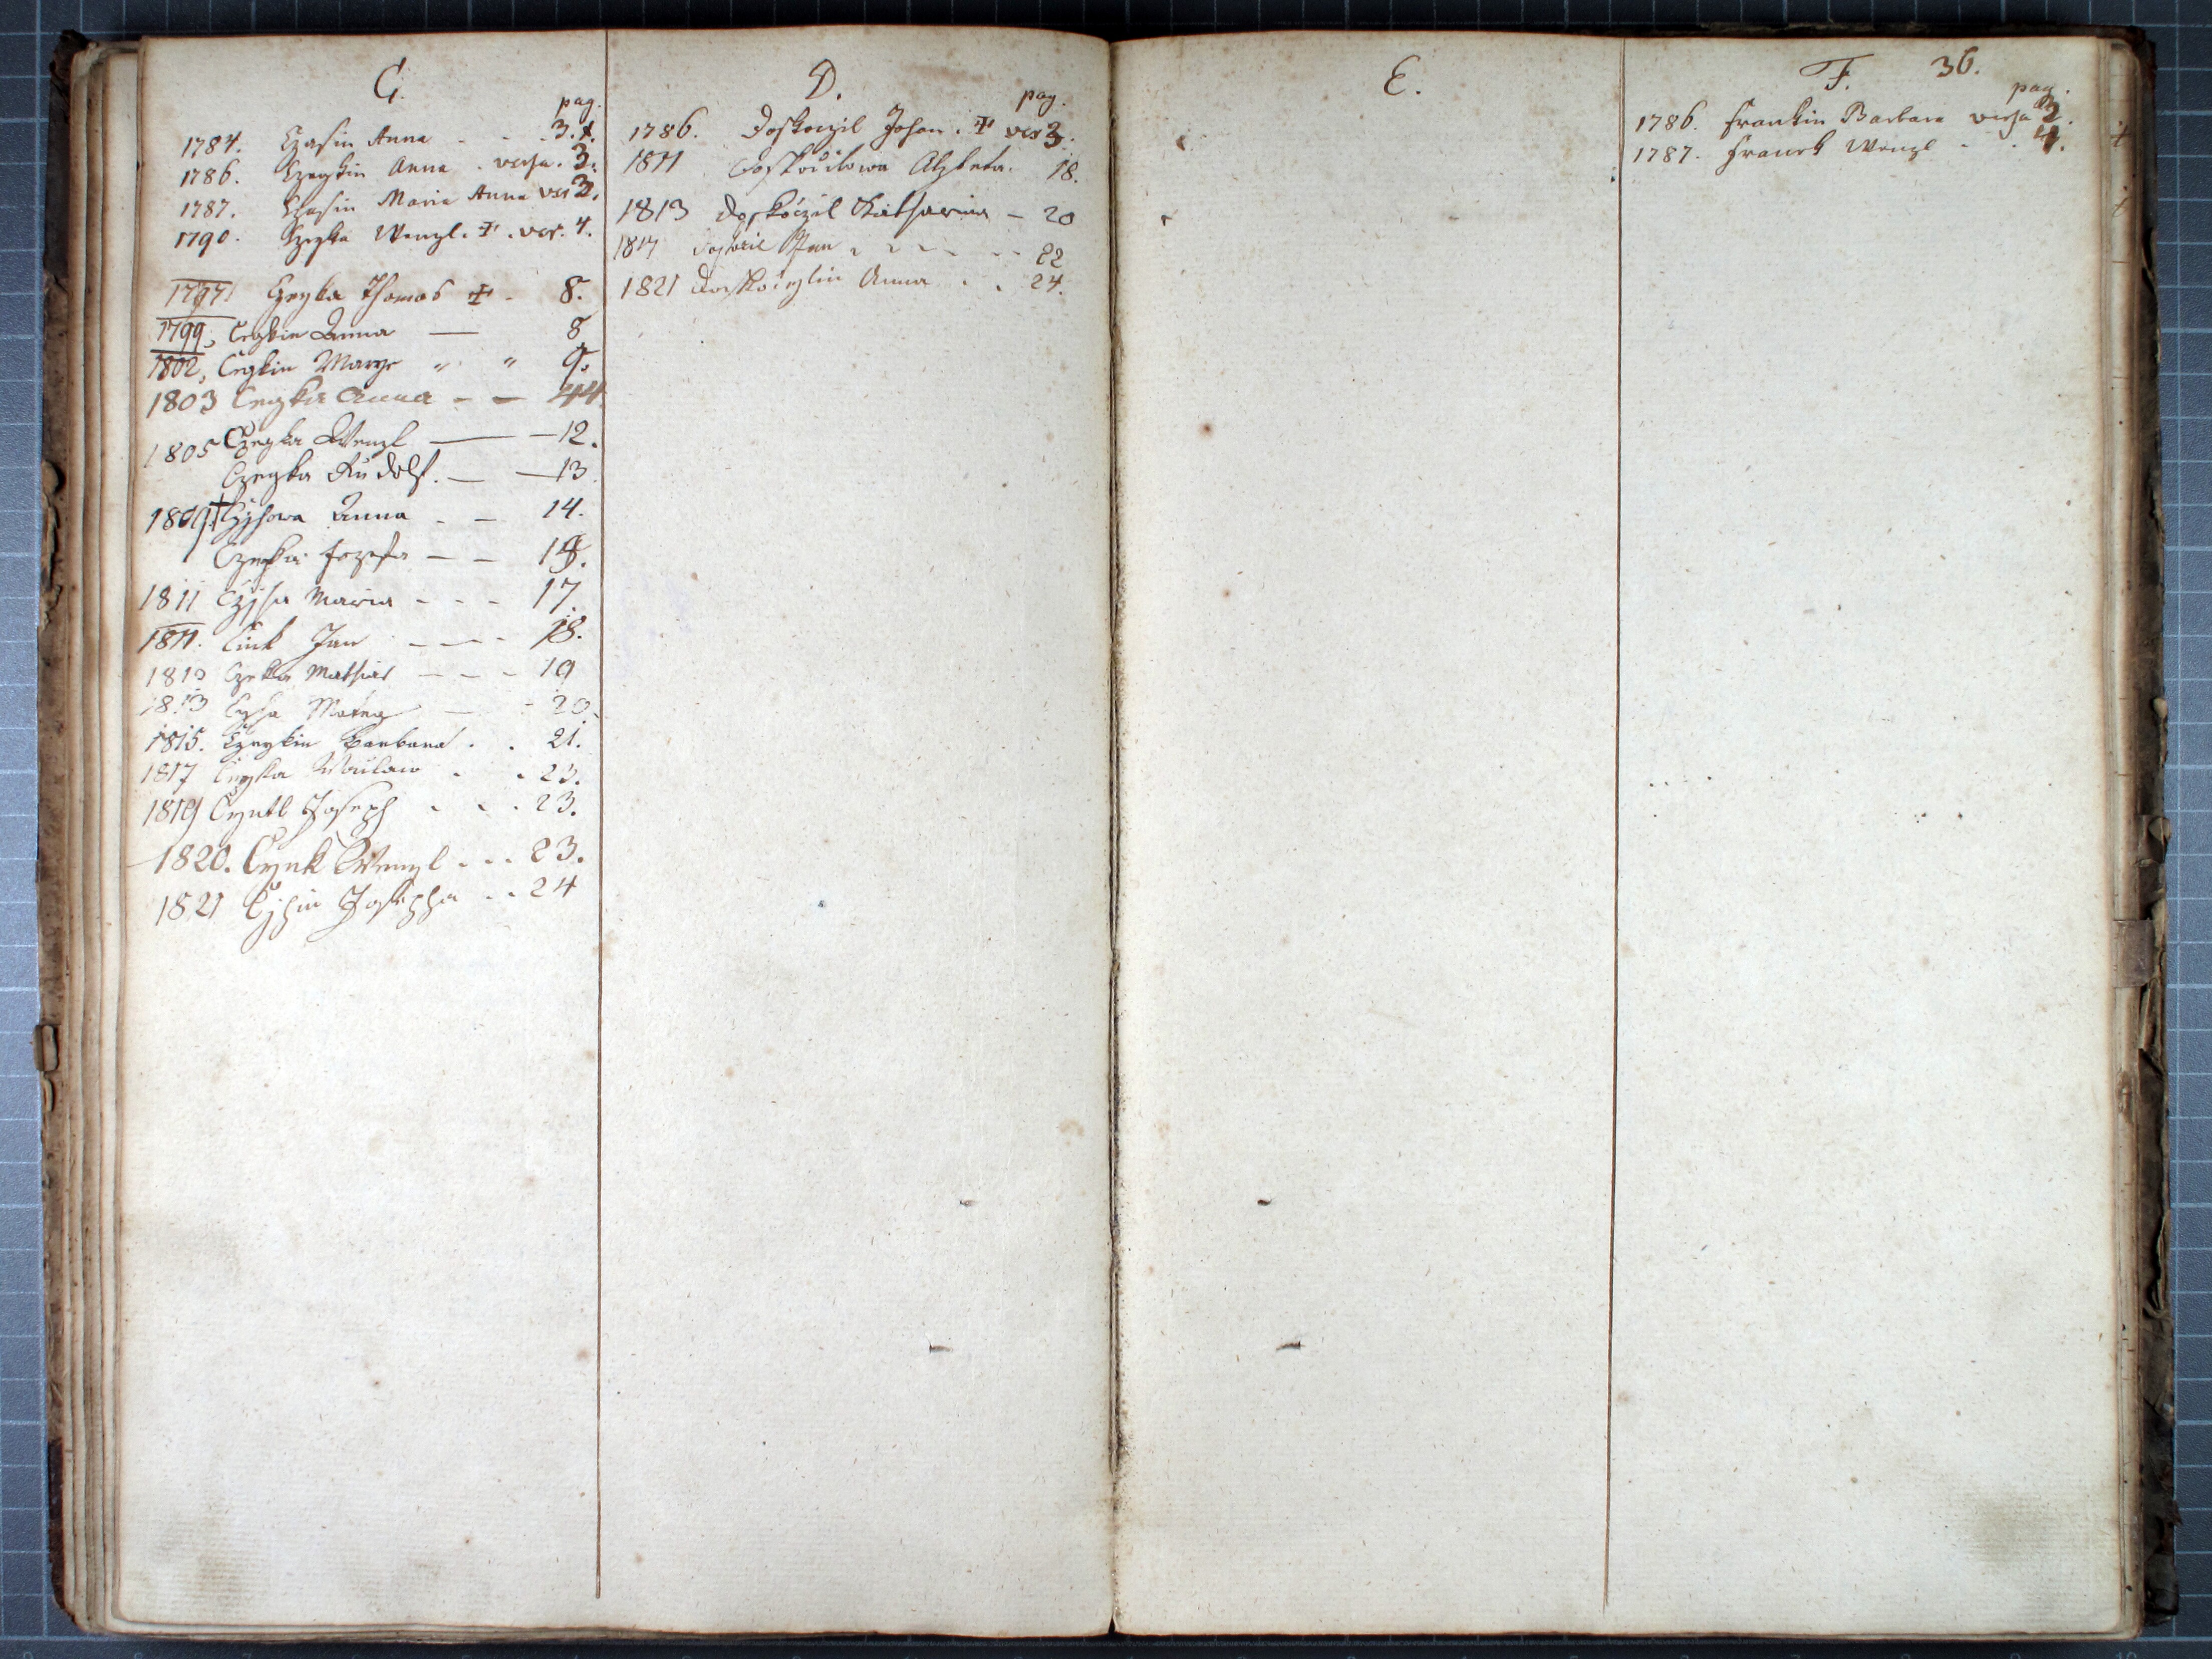 C.
pag.
1784. Czasin Anna - - 3.
1786. Czeykin Anna . versa. 3.
1787. Czasin Maria Anna ver 3.
1790. Czeyka Wenzl. ver. 4.
1797 Czeyka Thomas - 8.
1799, Cegkin Anna — 8
1802, Cegkin Marye " " 9.
1803 Cegka Anna - -
1805 Czegka Wenzl — 12.
Czegka Rudolf. — 13.
1809 † Czjhowa Anna - - 14.
Czegka Jozefa - -
1811 Czjha Maria - - - 17
1811. Cink Jan - - - 18.
Czeka Mathias - - - 19
1813 Cyha Matieg - - 20.
1815. Czeykin Barbara . . 21.
1817 Cegka Waclaw . . 23.
1819 Joseph . . . 23.
1820. Cynk Wenzl . . . 23.
1821 Cjhin Josepha . . 24
D.
pag.
1786. Doskoczil Johan. ver 3.
1811 Doskočilowa Alzbeta. 18.
1813 Doskoczil Katharina - 20
Jan - - - 22
1821 Doskoczlin Anna . . 24.
E.
F. 36.
pag.
1786. Frankin Barbara versa 3.
1787. Franck Wenzl - . 4.